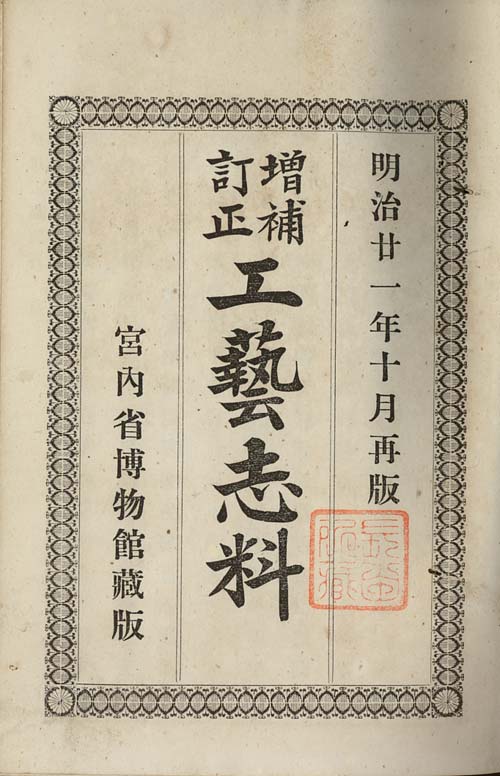 明治廿一年十月再版
増補
訂正
工藝志料
宮内省博物館藏版